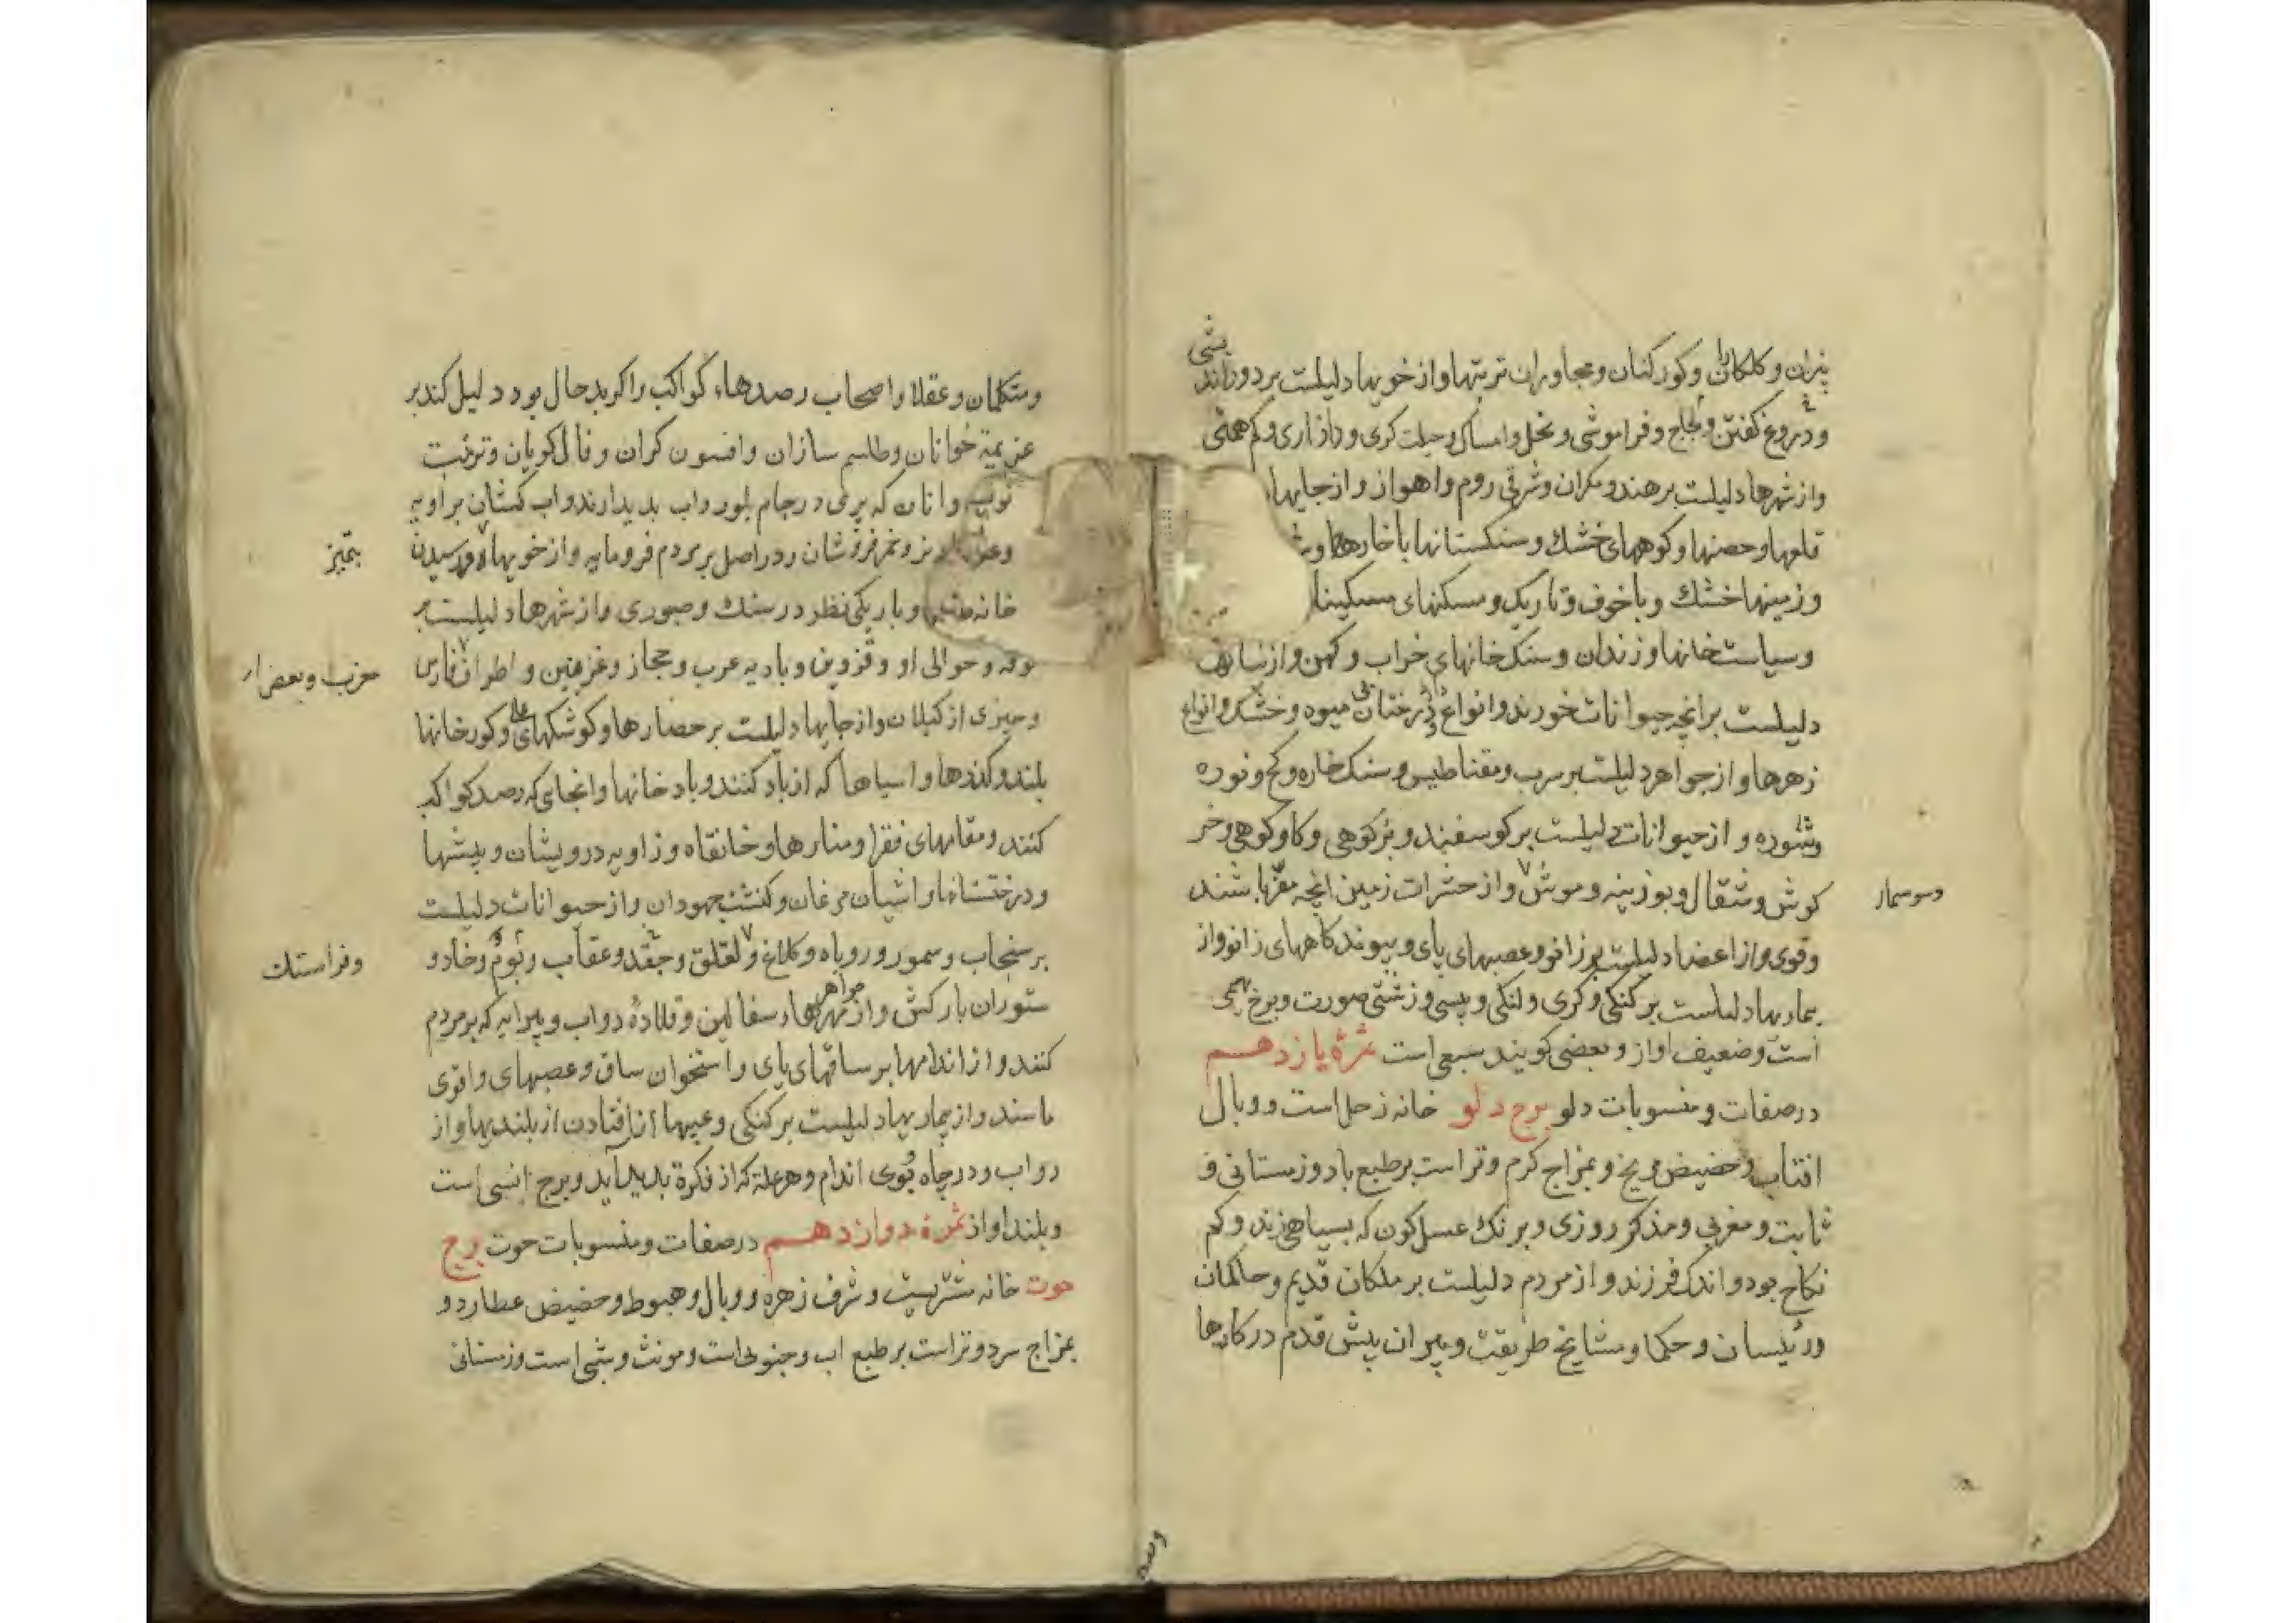 پزان و کلکاران وکورکنان ومجاوران تربتها واز خویها دلیلست بر دوراندیشی
ودروغ کفتن ولجاج وفراموشی وبخل وامساک وحیلت کری وداد اری وکم همتی
واز شهرها دلیلست بر هند ومکران وشرقی روم واهواز واز جایها
قلعها وحصنها وکوههای خشک وسنکستانها با خارها
وزمینها خشک وبا خوف وتاریک ومسکنهای مسکینان
وسیاست خانها وزندان وسنک خانهای خراب وکهن واز نباتها
دلیلست بر انچه حیوانات خورند وانواع درختان بی میوه وخشک وانواع
زهرها واز جواهر دلیلست بر سرب ومقناطیس وسنک خاره وکج ونوره
وشوره و از حیوانات دلیلست بر کوسفند وبز کوهی وکاو کوهی وخر
کوش وشقال وبوزینه وموش واز حشرات زمین انچه مضر باشند
وسوسمار
وقوی واز اعضا دلیلست بر زانو وعصبهای پای وپیوندکاههای زانو واز
بیماریها دلیلست بر کنکی وکری ولنکی وپیسی وزشتی صورت وبرج بهیمی
است وضعیف اواز وبعضی کویند سبعی است ثمرهٔ یازدهم
در صفات ومنسوبات دلو برج دلو خانه زحل است ووبال
افتاب وحضیض مریخ وبمزاج کرم وتر است بر طبع باد وزمستانی و
ثابت ومغربی ومذکر روزی وبرنک عسل کون که بسیاهی زند وکم
نکاح بود واندک فرزند واز مردم دلیلست بر ملکان قدیم وحاکمان
ورئیسان وحکما ومشایخ طریقت وپیران پیش قدم در کارها
ومتکلمان وعقلا واصحاب رصدهاء کواکب را کر بد حال بود دلیل کند بر
عزیمة خوانان وطلسم سازان وافسون کران وفال کویان وتربت
وانان که پری در جام بلور واب بدیدارند واب کشان
وخمر فروشان ودر اصل بر مردم فرومایه واز خویها
بتمیز
خانه وباریکی نظر در سنک وصبوری واز شهرها دلیلست بر
کوفه وحوالی او وقزوین وبادیه عرب وحجاز وغزنین واطراف فارس
مغرب وبعض از
وچیزی از کیلان واز جایها دلیلست بر حصارها وکوشکهای عالی وکورخانها
بلند وکندها واسیاها که از باد کنند وباد خانها وانجای که رصد کواکب
کنند ومقامهای فقرا ومنارها وخانقاه وزاویه درویشان وبیشها
ودرختستانها واشیان مرغان وکنشت جهودان واز حیوانات دلیلست
بر سنجاب وسمور وروباه وکلاغ ولقلق وجغد وعقاب وبوم وخاد و
وفراستک
ستوران بارکش واز جواهر مهرهاء سفالین وقلادهٔ دواب وپیرایه که بر مردم
کنند واز اندامها بر ساقهای پای واستخوان ساق وعصبهای واقوی
ماسند واز بیماریها دلیلست بر کنکی وعیبها از افتادن از بلندیها واز
دواب ودر چاه وقوی اندام وهر علة که از فکرة بدید آید وبرج انسی است
وبلند اواز ثمرهٔ دوازدهم در صفات ومنسوبات حوت برج
حوت خانه مشتریست وشرف زهره ووبال وهبوط وحضیض عطارد و
بمزاج سرد وتر است بر طبع اب وجنوبی است ومونث وشبی است وزمستانی